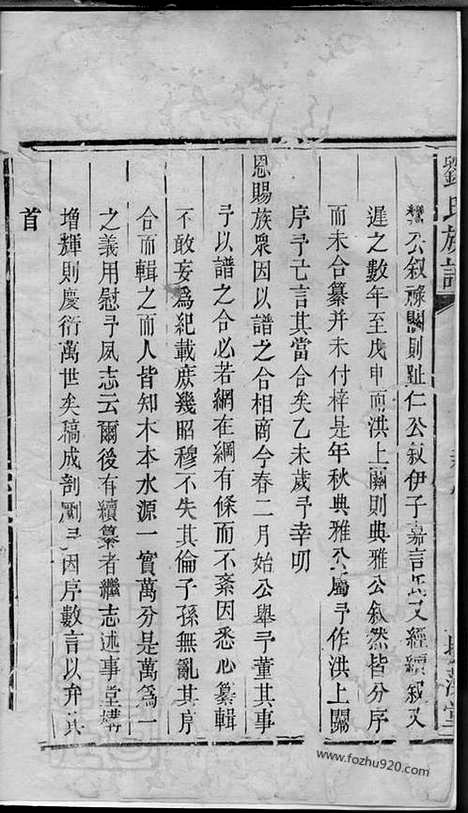 劉氏族譜
公敘祿闗則趾仁公敘伊子嘉言氏又經續敘又
遲之數年至戊申而洪上闗則典雅公敘然皆分序
而未合纂并未付梓是年秋典雅公屬予作洪上闗
序予亡言其當合矣乙未歲予幸叨
恩賜族衆因以譜之合相商今春二月始公舉予董其事
予以譜之合必若網在綱有條而不紊因悉心纂輯
不敢妄爲紀載庶幾昭穆不失其倫子孫無亂其序
合而輯之而人皆知木本水源一實萬分是萬爲一
之義用慰予夙志云爾後有續纂者繼志述事堂構
增輝則慶衍萬世矣稿成剞劂予因序數言以弁其
首
www.fozhu920.com